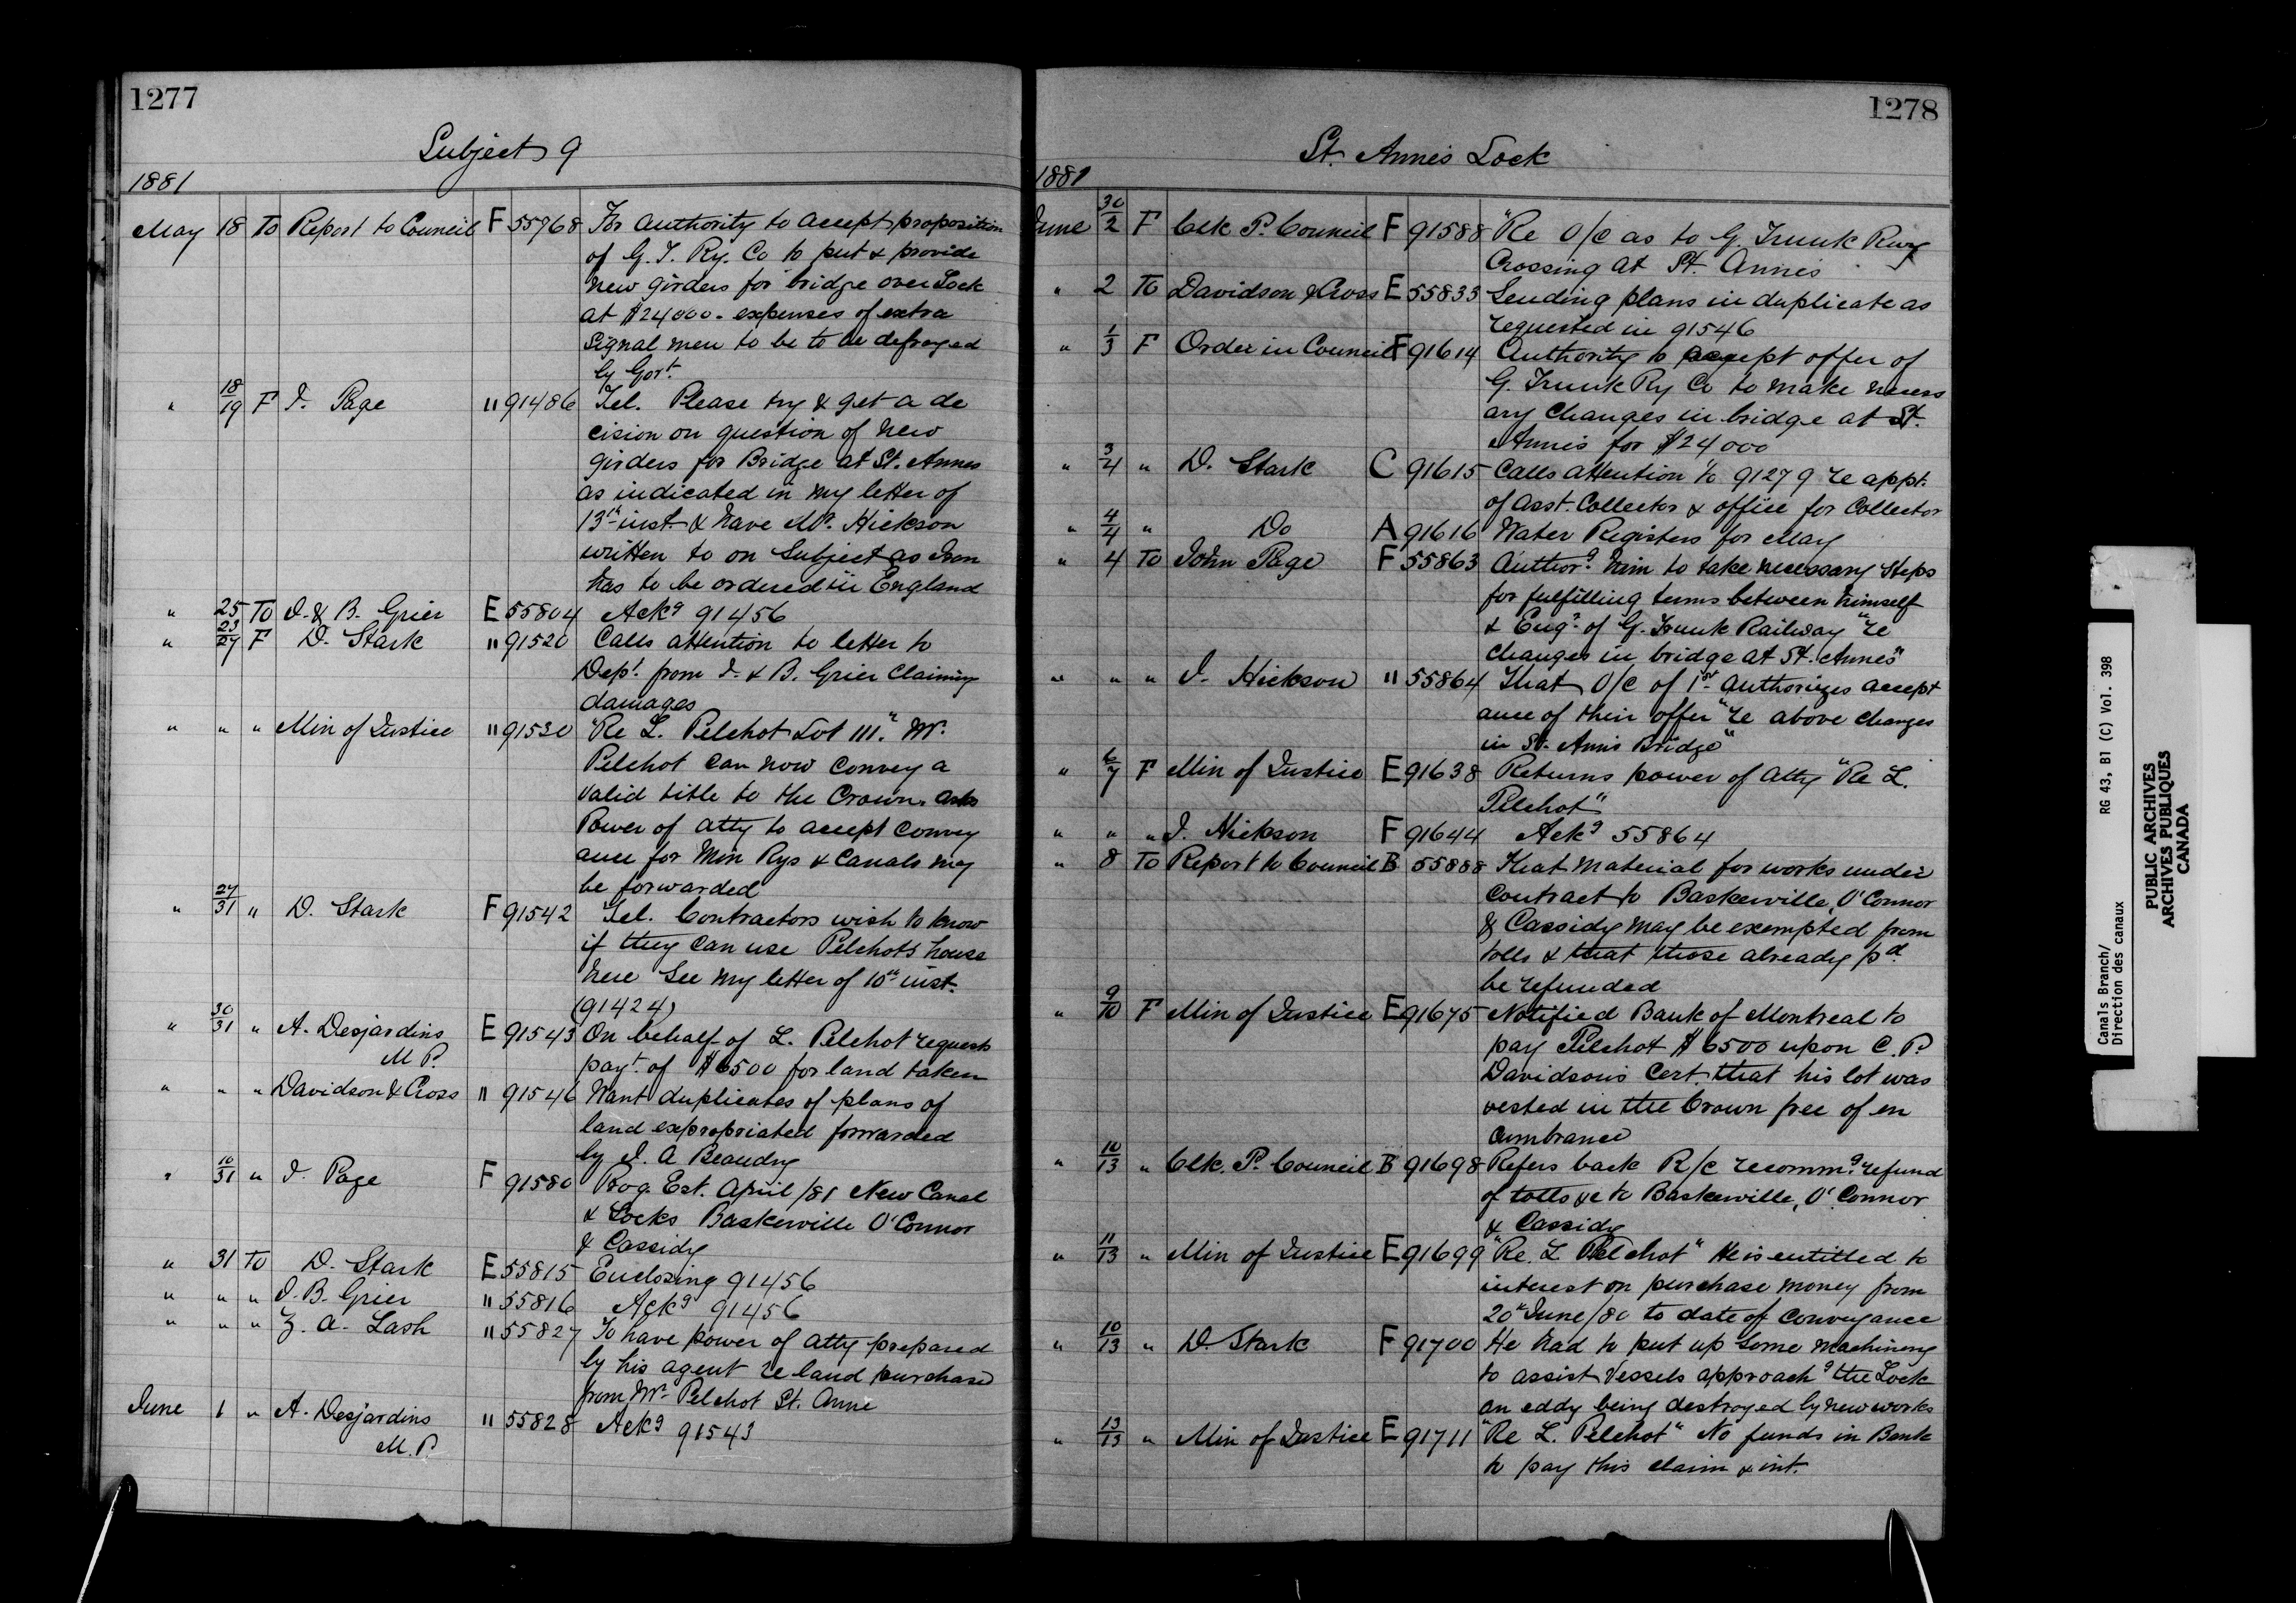 1277
Subject 9
1881
May 18 To Report to Council F 55768 For authority to accept proposition
of G. T. Ry. Co to put & provide
new girders for bridge over Lock
at $24000 - expenses of extra
signal men to be to be defrayed
by Govt.
" 18/19 F J. Page " 91486 Tel. Please try & get a de
cision on question of new
girders for Bridge at St. Annes
as indicated in my letter of
13th inst & have Mr. Hickson
written to on Subject as Iron
has to be ordered in England
" 25 To J. & B. Grier E 55804 Ackg 91456
" 23/27 F D. Stark " 91520 Calls attention to letter to
Dept. from J. & B. Grier claiming
damages
" " " Min of Justice " 91530 "Re L. Pelchot Lot 111". Mr.
Pelchot can now convey a
valid title to the Crown. asks
Power of atty to accept convey
ance for Min Rys & Canals may
be forwarded
" 27/31 " D. Stark F 91542 Tel. Contractors wish to know
if they can use Pelchots house
here See my letter of 10th inst.
(91424)
" 30/31 " A. Desjardins E 91543 On behalf of L. Pelchot requests
M P. payt. of $6500 for land taken
" " " Davidson & Cross " 91546 Want duplicates of plans of
land expropriated forwarded
by J. A Beaudry
" 10/31 " J. Page F 91580 Prog. Est. April /81 New Canal
& Locks Baskerville O'Connor
& Cassidy
" 31 To D. Stark E 55815 Enclosing 91456
" " " J. B. Grier " 55816 Ackg 91456
" " " Z. A. Lash " 55827 To have power of atty prepared
by his agent re land purchased
from Mr. Pelchot St. Anne
June 1 " A. Desjardins " 55828 Ackg 91543
M. P.
1278
St. Annes Lock
1881
June 30/2 F Clk P. Council F 91588 "Re O/C as to G. Trunk Rwy
Crossing at St. Annes
" 2 To Davidson & Cross E 55833 Sending plans in duplicate as
requested in 91546
" 1/3 F Order in Council F 91614 Authority to accept offer of
G. Trunk Ry Co to make necess
ary changes in bridge at St.
Annes for $24000
" 3/4 " D. Stark C 91615 Calls attention to 91279 re appt.
of Asst. Collector & office for Collector
" 4/4 " Do A 91616 Water Registers for May
" 4 To John Page F 55863 Authorg. him to take necessary steps
for fulfilling terms between himself
& Engr. of G. Trunk Railway "re
changes in bridge at St. Annes"
" " " J. Hickson " 55864 That O/C of 1st authorizes accept
ance of their offer "re above changes
in St. Anns Bridge"
" 6/7 F Min of Justice E 91638 Returns power of Atty "Re L.
Pelchot"
" " " J. Hickson F 91644 Ackg 55864
" 8 To Report to Council B 55888 That material for works under
contract to Baskerville, O'Connor
& Cassidy may be exempted from
tolls & that those already pd.
be refunded
" 9/10 F Min of Justice E 91675 Notified Bank of Montreal to
pay Pelchot $6500 upon C. P.
Davidson's Cert. that his lot was
vested in the Crown free of en
cumbrance
" 10/13 " Clk. P. Council B 91698 Refers back R/C recommg. refund
of tolls &c to Baskerville, O'Connor
& Cassidy
" 11/13 " Min of Justice E 91699 "Re. L Pelchot" He is entitled to
interest on purchase money from
20th June/80 to date of conveyance
" 10/13 " D. Stark F 91700 He had to put up some machinery
to assist vessels approachg the Lock
an eddy being destroyed by new works
" 13/13 " Min of Justice E 91711 "Re L. Pelchot" No funds in Bank
to pay this claim & int.
Canals Branch/
Direction des canaux
RG 43, B1 (C) Vol. 398
PUBLIC ARCHIVES
ARCHIVES PUBLIQUES
CANADA